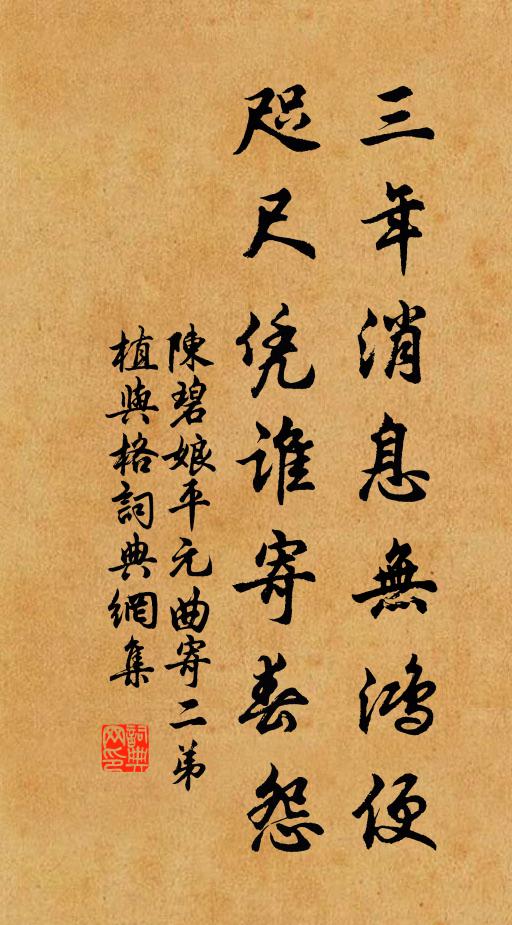 三年消息無鴻便
咫尺凭誰寄春怨
陳碧娘平元曲寄二弟
植與格詞典網集
詞典网印